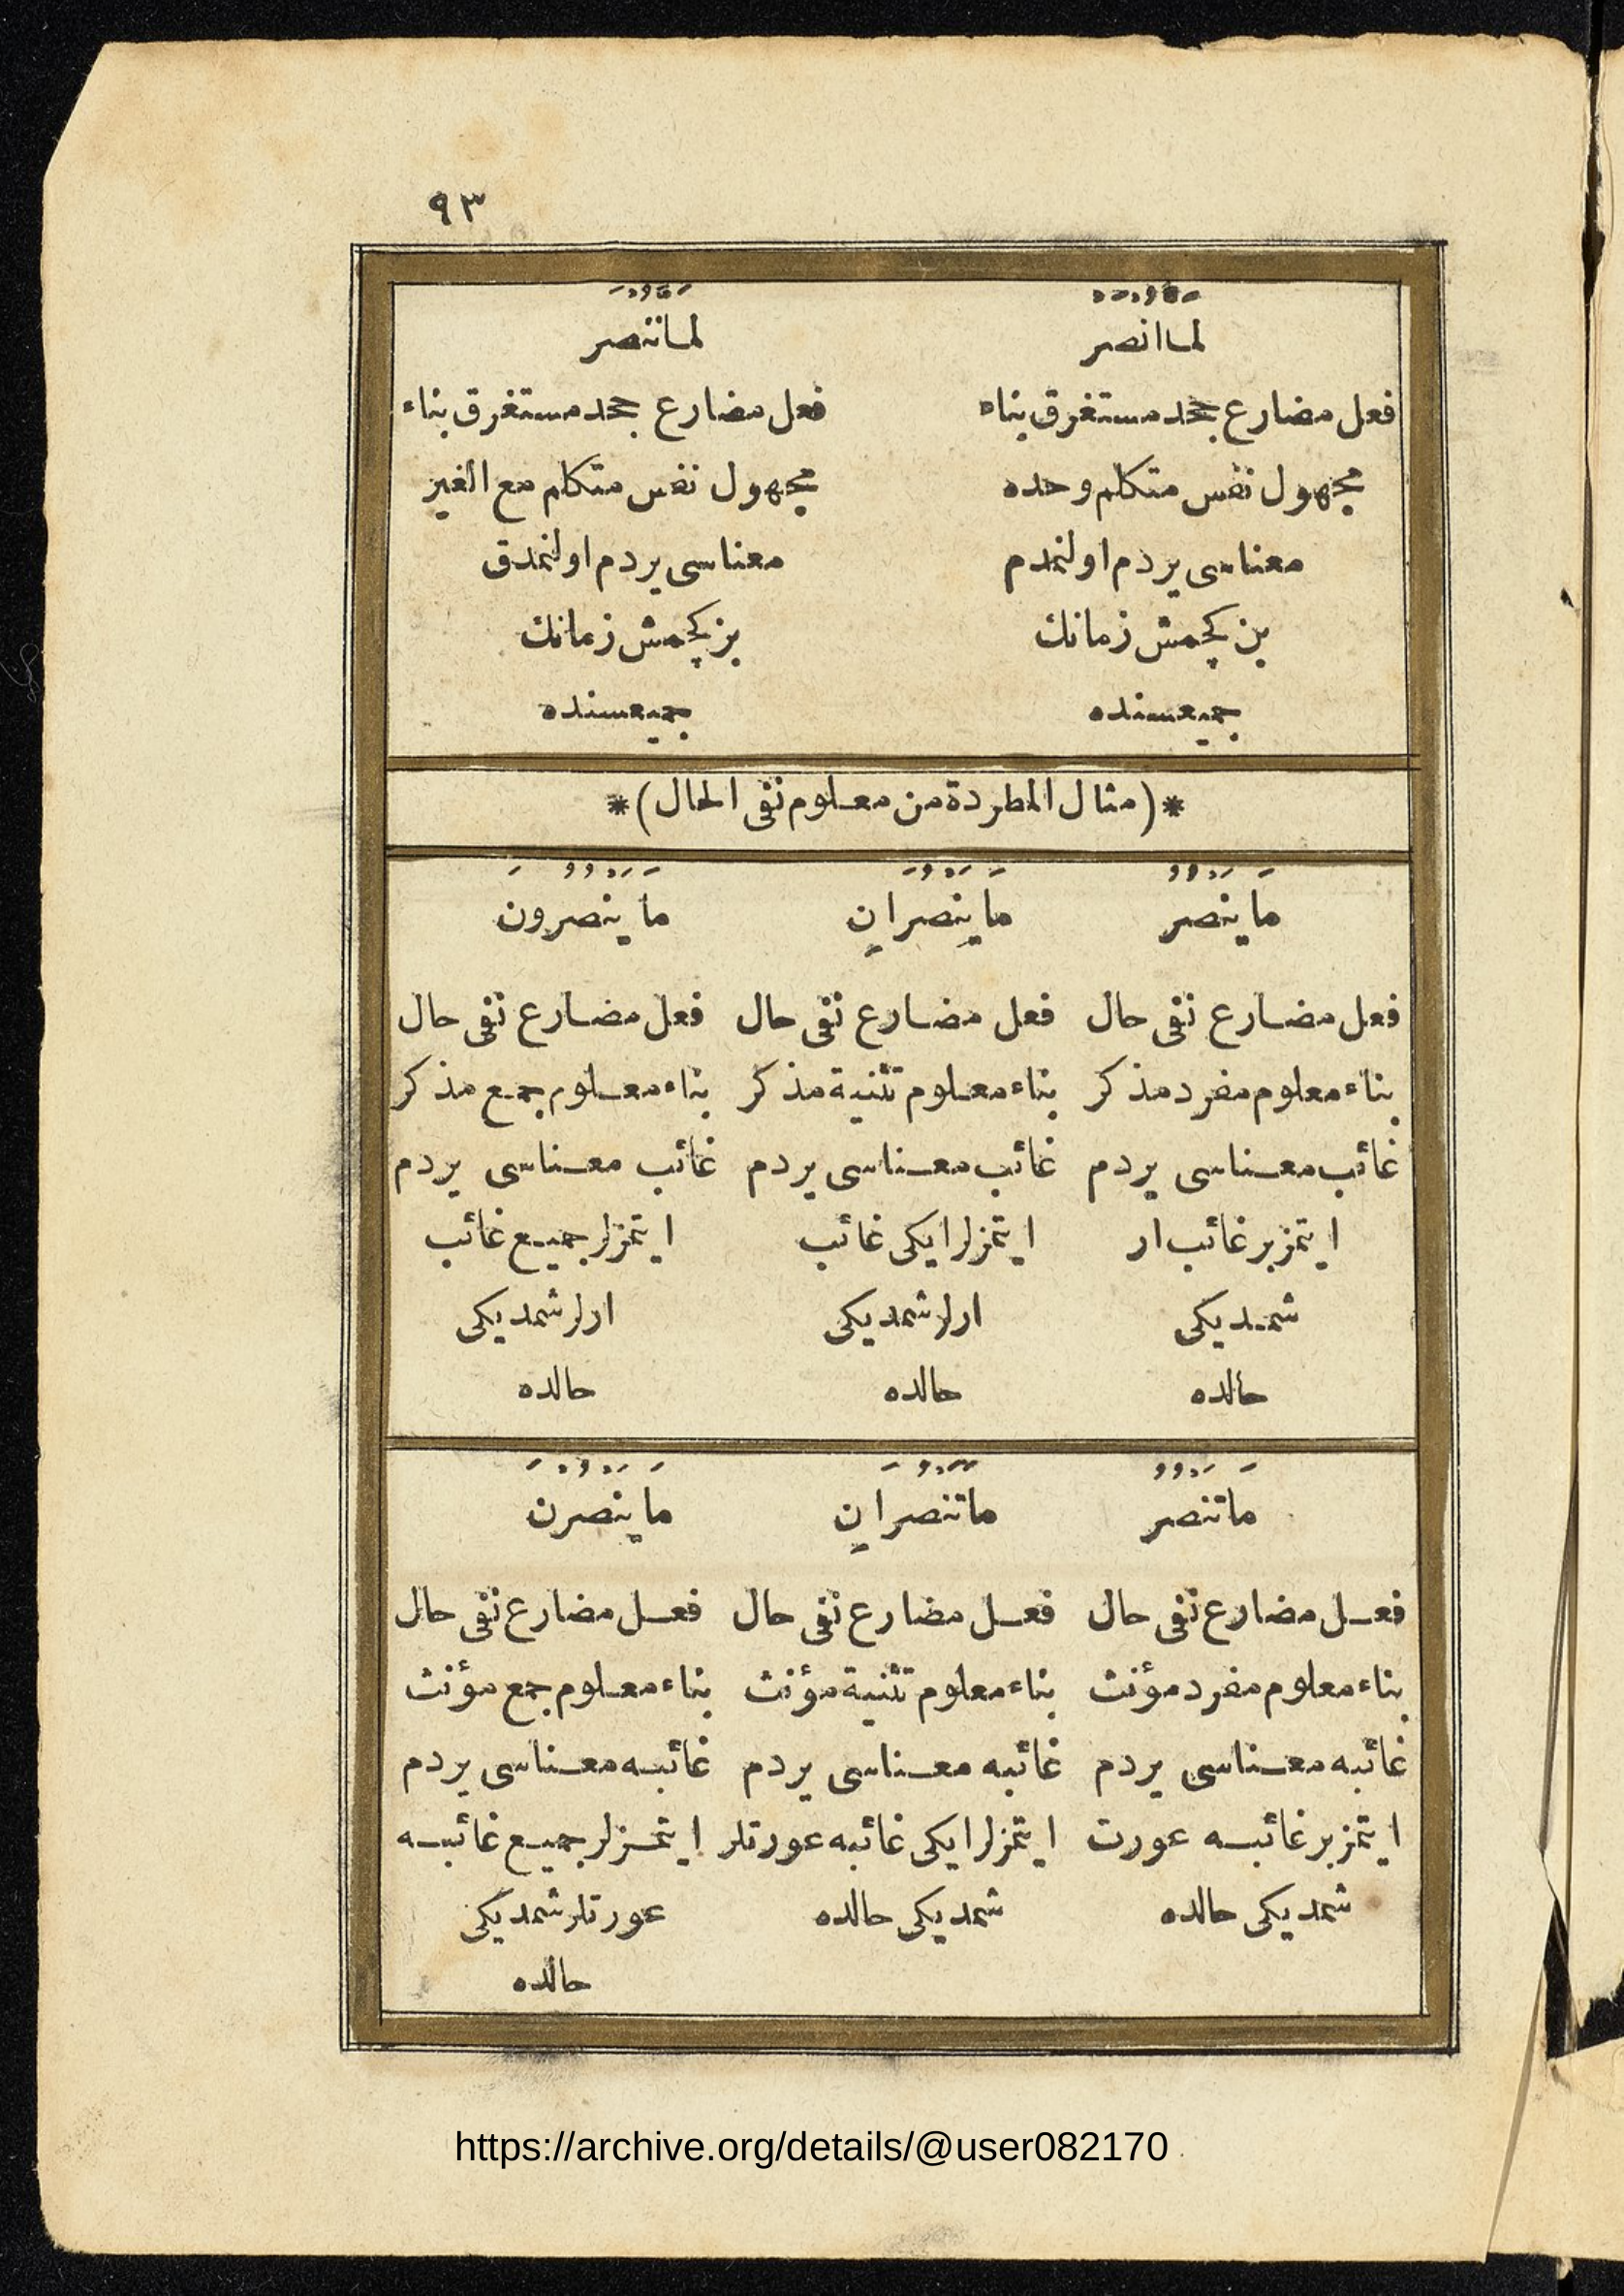 ٩٣
لما انصر
فعل مضارع جحد مستغرق بناء
مجهول نفس متكلم وحده
معناسى يردم اولنمدم
بن كچمش زمانك
جميعسنده
لما ننصر
فعل مضارع جحد مستغرق بناء
مجهول نفس متكلم مع الغير
معناسى يردم اولنمدق
بز كچمش زمانك
جميعسنده
*(مثال المطردة من معلوم نفى الحال)*
مَا يَنْصُرُ
فعل مضارع نفى حال
بناء معلوم مفرد مذكر
غائب معناسى يردم
ايتمز بر غائب ار
شمديكى
حالده
مَا يَنْصُرَانِ
فعل مضارع نفى حال
بناء معلوم تثنية مذكر
غائب معناسى يردم
ايتمزلر ايكى غائب
ارلر شمديكى
حالده
مَا يَنْصُرُونَ
فعل مضارع نفى حال
بناء معلوم جمع مذكر
غائب معناسى يردم
ايتمزلر جميع غائب
ارلر شمديكى
حالده
مَا تَنْصُرُ
فعل مضارع نفى حال
بناء معلوم مفرد مؤنث
غائبه معناسى يردم
ايتمز بر غائبه عورت
شمديكى حالده
مَا تَنْصُرَانِ
فعل مضارع نفى حال
بناء معلوم تثنية مؤنث
غائبه معناسى يردم
ايتمزلر ايكى غائبه عورتلر
شمديكى حالده
مَا يَنْصُرْنَ
فعل مضارع نفى حال
بناء معلوم جمع مؤنث
غائبه معناسى يردم
ايتمزلر جميع غائبه
عورتلر شمديكى
حالده
https://archive.org/details/@user082170